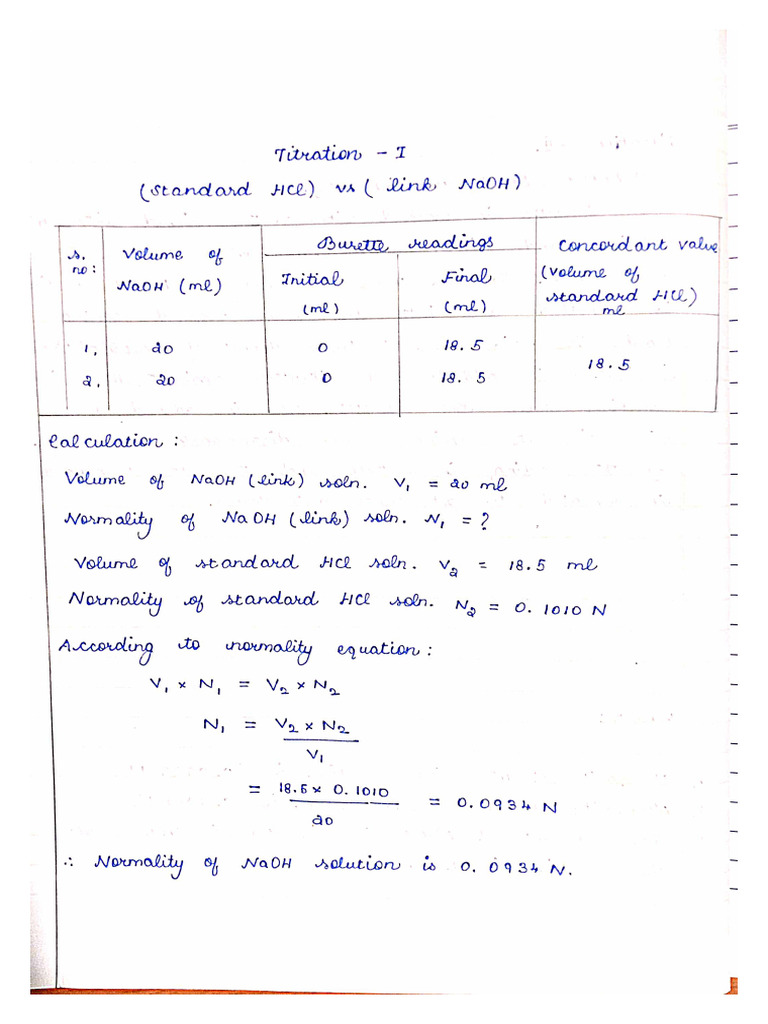 Titration - I
(Standard HCl) vs ( link NaOH)
S. no: Volume of NaOH (ml) Burette readings Initial (ml) Final (ml) Concordant value (Volume of standard HCl) ml
1. 20 0 18.5 18.5
2. 20 0 18.5
Calculation :
Volume of NaOH (link) soln. V₁ = 20 ml
Normality of NaOH (link) soln. N₁ = ?
Volume of standard HCl soln. V₂ = 18.5 ml
Normality of standard HCl soln. N₂ = 0.1010 N
According to normality equation :
V₁ × N₁ = V₂ × N₂
N₁ = V₂ × N₂
V₁
= 18.5 × 0.1010 = 0.0934 N
20
∴ Normality of NaOH solution is 0.0934 N.